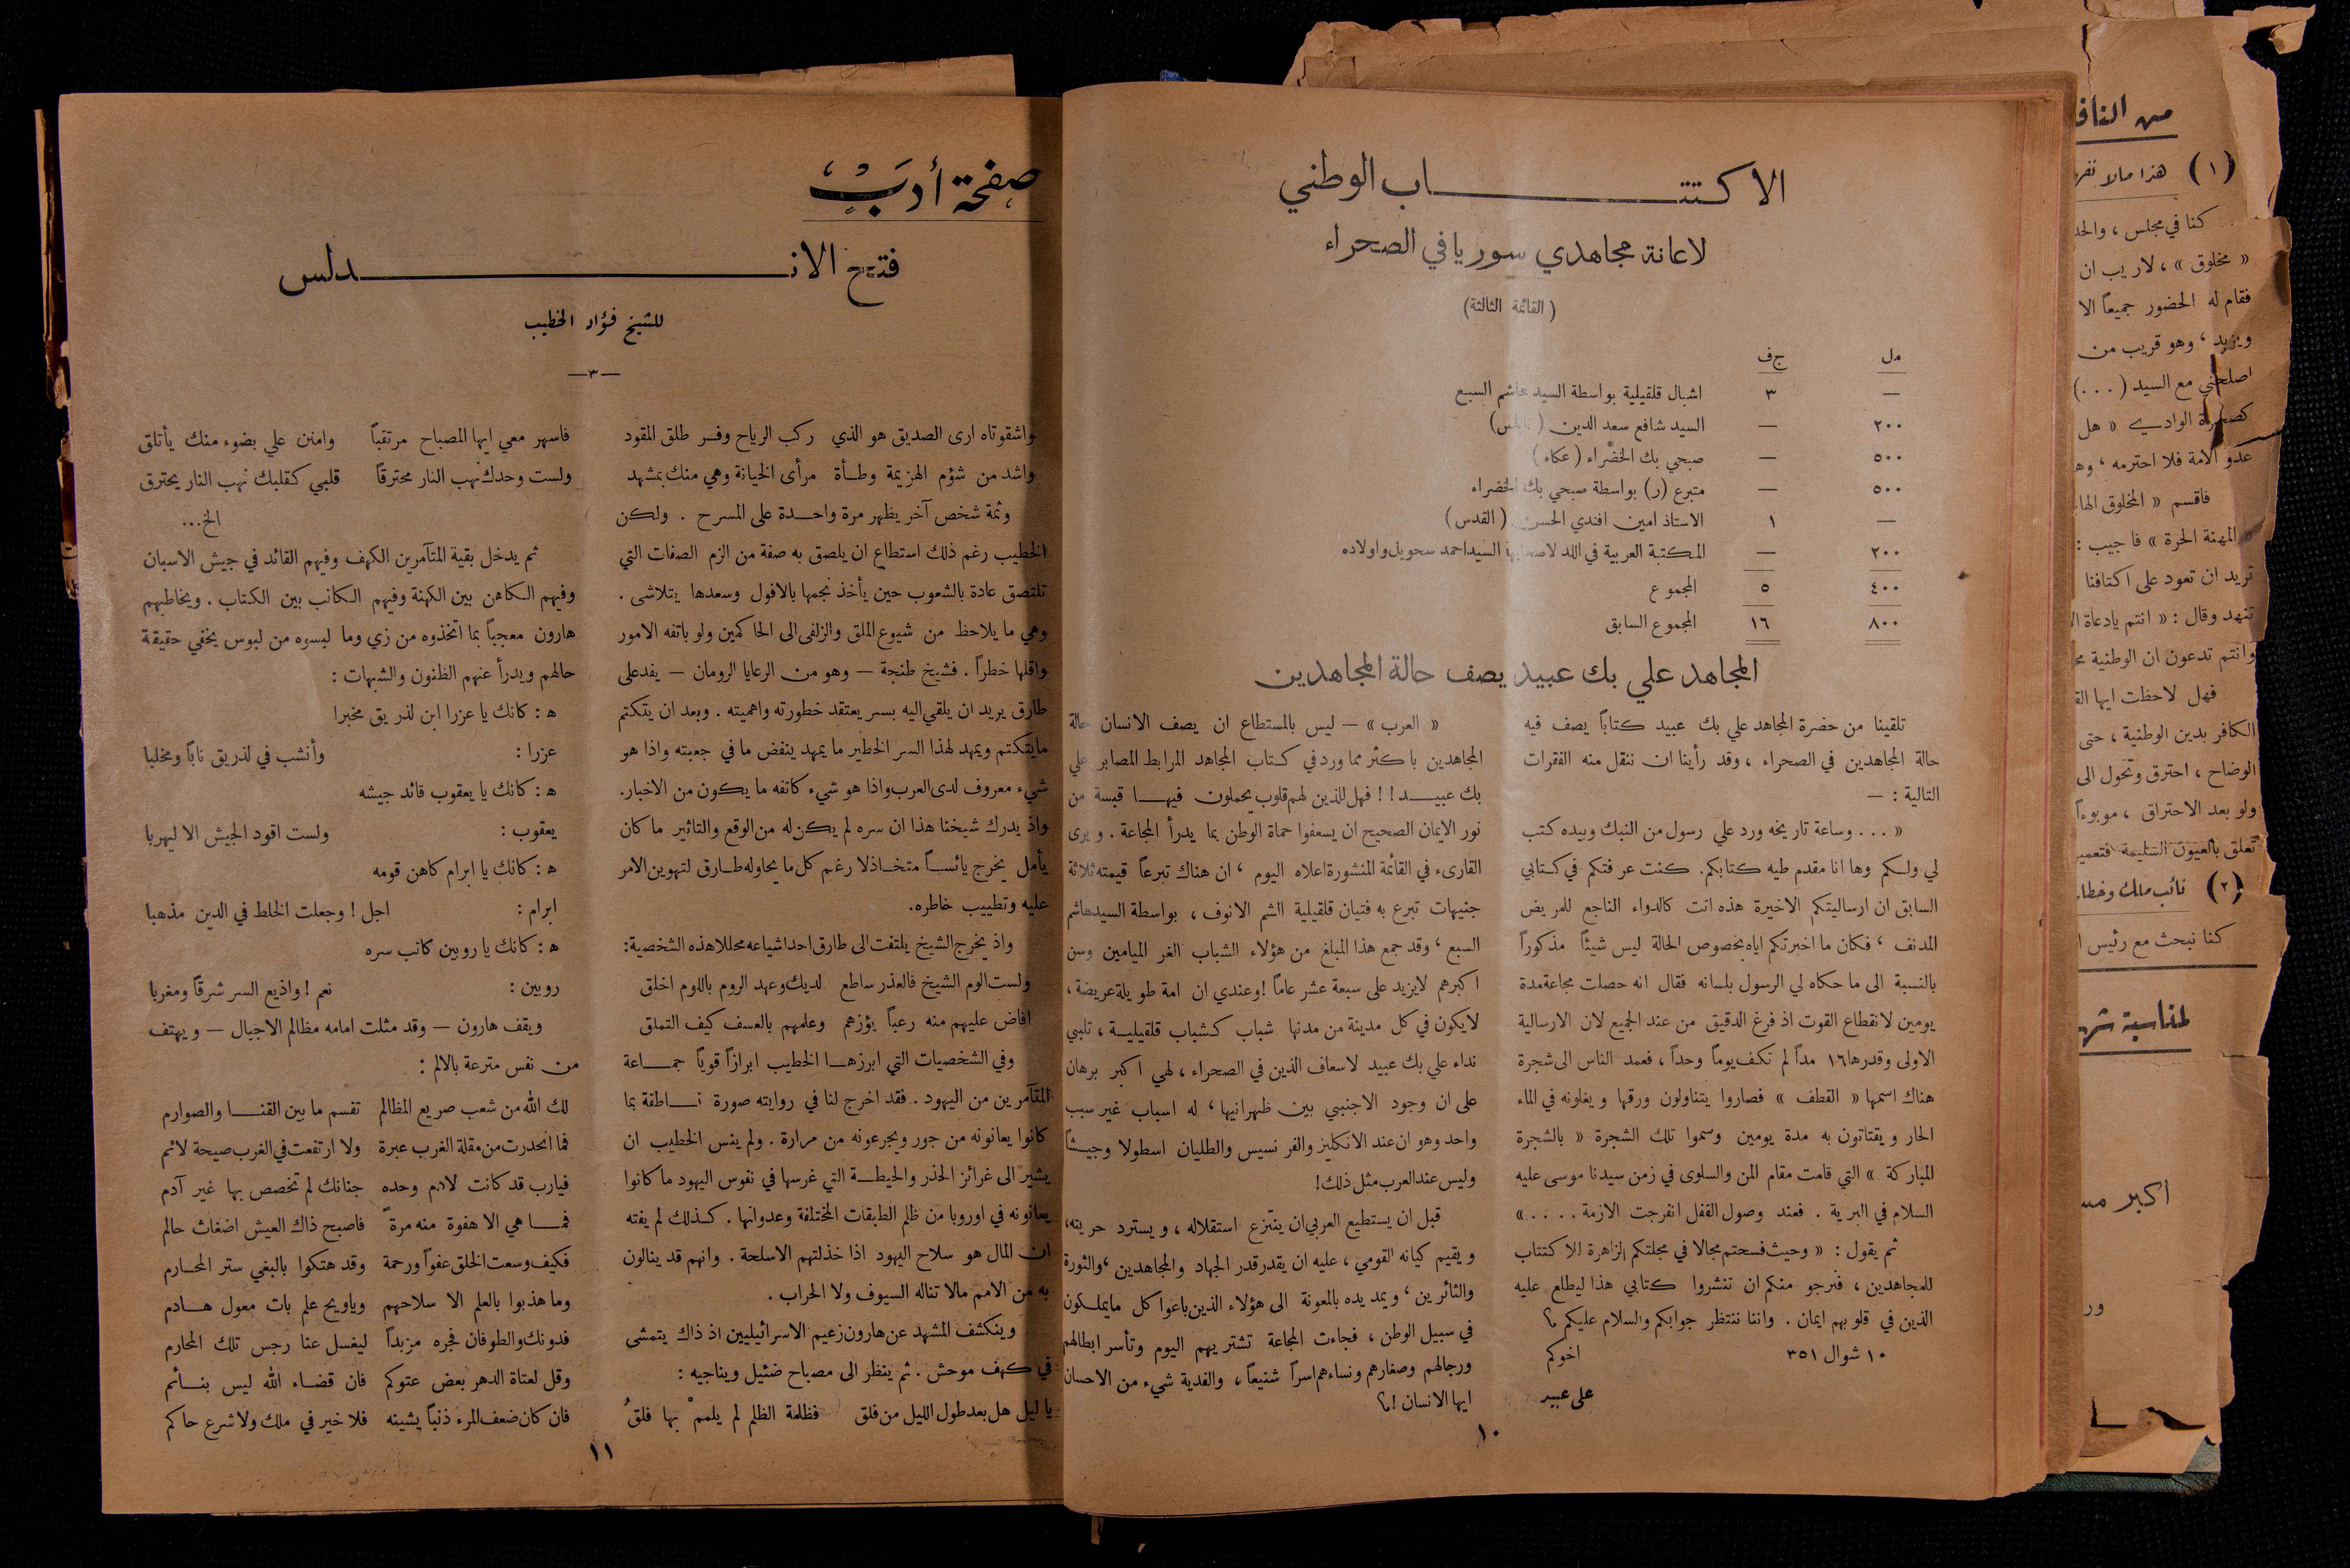 الاكتتاب الوطني
لاعانة مجاهدي سوريا في الصحراء
(القائمة الثالثة)
مل ج ف
— ٣ اشبال قلقيلية بواسطة السيد هاشم السبع
٢٠٠ — السيد شافع سعد الدين (نابلس)
٥٠٠ — صبحي بك الخضراء (عكاء)
٥٠٠ — متبرع (ر) بواسطة صبحي بك الخضراء
— ١ الاستاذ امين افندي الحسن (القدس)
٢٠٠ — المكتبة العربية في اللد لاصحابها السيد احمد سحويل واولاده
٤٠٠ ٥ المجموع
٨٠٠ ١٦ المجموع السابق
المجاهد علي بك عبيد يصف حالة المجاهدين
تلقينا من حضرة المجاهد علي بك عبيد كتاباً يصف فيه
حالة المجاهدين في الصحراء ، وقد رأينا ان ننقل منه الفقرات
التالية : —
« ... وساعة تاريخه ورد علي رسول من النبك وبيده كتب
لي ولكم وها انا مقدم طيه كتابكم. كنت عرفتكم في كتابي
السابق ان ارساليتكم الاخيرة هذه اتت كالدواء الناجع للمريض
المدنف ، فكان ما اخبرتكم اياه بخصوص الحالة ليس شيئاً مذكوراً
بالنسبة الى ما حكاه لي الرسول بلسانه فقال انه حصلت مجاعة مدة
يومين لانقطاع القوت اذ فرغ الدقيق من عند الجميع لان الارسالية
الاولى وقدرها ١٦ مداً لم تكف يوماً وحداً ، فعمد الناس الى شجرة
هناك اسمها « القطف » فصاروا يتناولون ورقها ويغلونه في الماء
الحار ويقتاتون به مدة يومين وسموا تلك الشجرة « بالشجرة
المباركة » التي قامت مقام المن والسلوى في زمن سيدنا موسى عليه
السلام في البرية . فعند وصول القفل انفرجت الازمة .... »
ثم يقول : « وحيث فسحتم مجالا في مجلتكم الزاهرة للاكتتاب
للمجاهدين ، فنرجو منكم ان تنشروا كتابي هذا ليطلع عليه
الذين في قلوبهم ايمان . واننا ننتظر جوابكم والسلام عليكم ؟
١٠ شوال ٣٥١ اخوكم
على عبيد
« العرب » — ليس بالمستطاع ان يصف الانسان حالة
المجاهدين باكثر مما ورد في كتاب المجاهد المرابط المصابر علي
بك عبيد !! فهل للذين لهم قلوب يحملون فيها قبسة من
نور الايمان الصحيح ان يسعفوا حماة الوطن بما يدرأ المجاعة . ويرى
القارىء في القائمة المنشورة اعلاه اليوم ، ان هناك تبرعاً قيمته ثلاثة
جنيهات تبرع به فتيان قلقيلية الشم الانوف ، بواسطة السيد هاشم
السبع ، وقد جمع هذا المبلغ من هؤلاء الشباب الغر الميامين وسن
اكبرهم لا يزيد على سبعة عشر عاماً ! وعندي ان امة طويلة عريضة ،
لايكون في كل مدينة من مدنها شباب كشباب قلقيلية ، تلبي
نداء علي بك عبيد لاسعاف الذين في الصحراء ، لهي اكبر برهان
على ان وجود الاجنبي بين ظهرانيها ، له اسباب غير سبب
واحد وهو ان عند الانكليز والفرنسيس والطليان اسطولا وجيشاً
وليس عند العرب مثل ذلك !
قبل ان يستطيع العربي ان ينتزع استقلاله ، ويسترد حريته ،
ويقيم كيانه القومي ، عليه ان يقدر قدر الجهاد والمجاهدين ، والثورة
والثائرين ، ويمد يده بالمعونة الى هؤلاء الذين باعوا كل مايملكون
في سبيل الوطن ، فجاءت المجاعة تشتريهم اليوم وتأسر ابطالهم
ورجالهم وصغارهم ونساءهم اسراً شنيعاً ، والفدية شيء من الاحسان
ايها الانسان ! ؟
١٠
صفحة أدب
فتح الاندلس
للشيخ فؤاد الخطيب
—٣—
واشقوتاه ارى الصديق هو الذي ركب الرياح وفر طلق المقود
واشد من شؤم الهزيمة وطأة مرأى الخيانة وهي منك بمشهد
وثمة شخص آخر يظهر مرة واحدة على المسرح . ولكن
الخطيب رغم ذلك استطاع ان يلصق به صفة من الزم الصفات التي
تلتصق عادة بالشعوب حين يأخذ نجمها بالافول وسعدها يتلاشى .
وهي ما يلاحظ من شيوع الملق والزلفى الى الحاكمين ولو باتفه الامور
واقلها خطراً . فشيخ طنجة — وهو من الرعايا الرومان — يفد على
طارق يريد ان يلقي اليه بسر يعتقد خطورته واهميته . وبعد ان يتكتم
مايتكتم ويمهد لهذا السر الخطير ما يمهد ينفض ما في جعبته واذا هو
شيء معروف لدى العرب واذا هو شيء كاتفه ما يكون من الاخبار.
واذ يدرك شيخنا هذا ان سره لم يكن له من الوقع والتاثير ما كان
يأمل يخرج يائساً متخاذلا رغم كل ما يحاوله طارق لتهوين الامر
عليه وتطييب خاطره.
واذ يخرج الشيخ يلتفت الى طارق احد اشياعه محللا هذه الشخصية:
ولست الوم الشيخ فالعذر ساطع لديك وعهد الروم باللوم اخلق
افاض عليهم منه رعباً يؤزهم وعلمهم بالعسف كيف التملق
وفي الشخصيات التي ابرزها الخطيب ابرازاً قوياً جماعة
المتآمرين من اليهود . فقد اخرج لنا في روايته صورة ناطقة بما
كانوا يعانونه من جور ويجرعونه من مرارة . ولم ينس الخطيب ان
يشير الى غرائز الحذر والحيطة التي غرسها في نفوس اليهود ما كانوا
يعانونه في اوروبا من ظلم الطبقات المختلفة وعدوانها . كذلك لم يفته
ان المال هو سلاح اليهود اذا خذلتهم الاسلحة . وانهم قد ينالون
به من الامم مالا تناله السيوف ولا الحراب .
وينكشف المشهد عن هارون زعيم الاسرائيليين اذ ذاك يتمشى
في كهف موحش . ثم ينظر الى مصباح ضئيل ويناجيه :
يا ليل هل بعد طول الليل من فلق فظلمة الظلم لم يلمم بها فلق
فاسهر معي ايها المصباح مرتقباً وامنن علي بضوء منك يأتلق
ولست وحدك نهب النار محترقاً قلبي كقلبك نهب النار يحترق
الخ...
ثم يدخل بقية المتآمرين الكهف وفيهم القائد في جيش الاسبان
وفيهم الكاهن بين الكهنة وفيهم الكاتب بين الكتاب . ويخاطبهم
هارون معجباً بما اتخذوه من زي وما لبسوه من لبوس يخفي حقيقة
حالهم ويدرأ عنهم الظنون والشبهات :
ه : كانك يا عزرا ابن لذريق مخبرا
عزرا : وأنشب في لذريق ناباً ومخلبا
ه : كانك يا يعقوب قائد جيشه
يعقوب : ولست اقود الجيش الا ليهربا
ه : كانك يا ابرام كاهن قومه
ابرام : اجل ! وجعلت الخلط في الدين مذهبا
ه : كانك يا روبين كاتب سره
روبين : نعم ! واذيع السر شرقاً ومغربا
ويقف هارون — وقد مثلت امامه مظالم الاجيال — ويهتف
من نفس مترعة بالالم :
لك الله من شعب صريع المظالم تقسم ما بين القنا والصوارم
فما انحدرت من مقلة الغرب عبرة ولا ارتفعت في الغرب صيحة لائم
فيارب قد كانت لادم وحده جنانك لم تخصص بها غير آدم
فما هي الا هفوة منه مرة فاصبح ذاك العيش اضغاث حالم
فكيف وسعت الخلق عفواً ورحمة وقد هتكوا بالبغي ستر المحارم
وما هذبوا بالعلم الا سلاحهم وياويح علم بات معول هادم
فدونك والطوفان فجره مزبداً ليغسل عنا رجس تلك المحارم
وقل لعتاة الدهر بعض عتوكم فان قضاء الله ليس بنائم
فان كان ضعف المرء ذنباً يشينه فلا خير في ملك ولا شرع حاكم
١١
(١) هذا مالا
كنا في مجلس ،
« مخلوق » ، لاريب ان
فقام له الحضور جميعاً الا
ويزيد ، وهو قريب من
اصلحني مع السيد (...)
الوادي « هل
عدو الامة فلا احترمه ،
فاقسم « المخلوق
« المهنة الحرة » فاجيب :
تريد ان تعود على اكتافنا
تنهد وقال : « انتم يادعاة
وانتم تدعون ان الوطنية
فهل لاحظت ايها
الكافر بدين الوطنية ، حتى
الوضاح ، احترق وتحول الى
ولو بعد الاحتراق ، موبوءاً
تعلق بالعيون السليمة
(٢) نائب ملك
كنا نبحث مع رئيس
لمناسبة
أكبر